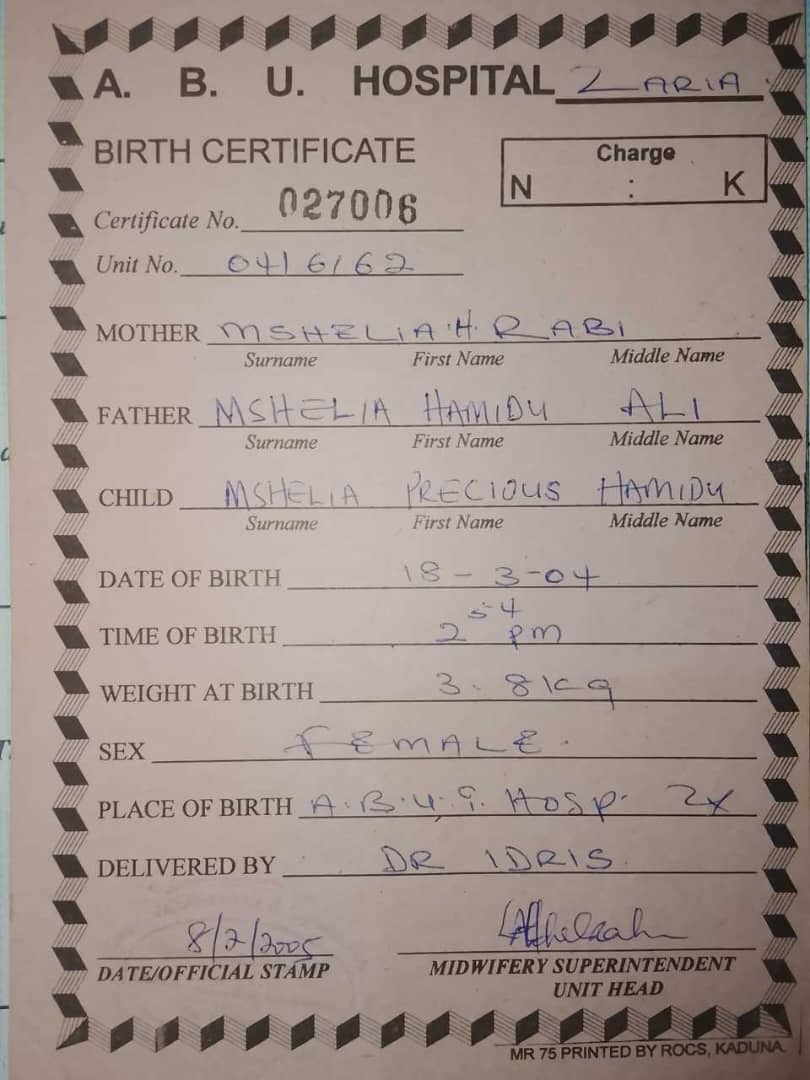 A. B. U. HOSPITAL ZARIA
BIRTH CERTIFICATE
Charge
N : K
Certificate No. 027006
Unit No. 0416162
MOTHER MSHELIA H. RABI
Surname First Name Middle Name
FATHER MSHELIA HAMIDU ALI
Surname First Name Middle Name
CHILD MSHELIA PRECIOUS HAMIDU
Surname First Name Middle Name
DATE OF BIRTH 18-3-04
TIME OF BIRTH 2 54 pm
WEIGHT AT BIRTH 3.8kg
SEX FEMALE.
PLACE OF BIRTH A.B.U. Hosp. Zx
DELIVERED BY DR IDRIS.
8/2/2005
DATE/OFFICIAL STAMP MIDWIFERY SUPERINTENDENT
UNIT HEAD
MR 75 PRINTED BY ROCS, KADUNA.